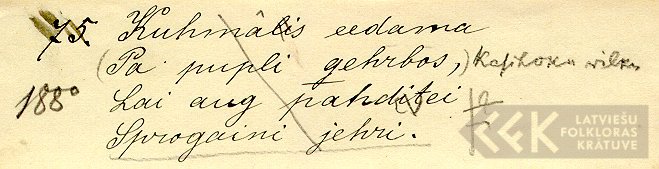 75 Kuhmâlis eedama
(Pa pupli gehrbos,)
1880 Lai aug pahditei
Sprogaini jehri.
LATVIEŠU
FOLKLORAS
KRĀTUVE